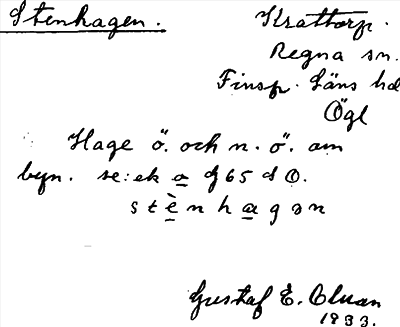 Stenhagen.
Krattorp.
Regna sn.
Finsp. Läns hd
Ögl
Hage ö. och n. ö. om
byn. se: ek a 965 d O.
s t è n h a g ə n
Gustaf E.
1933.